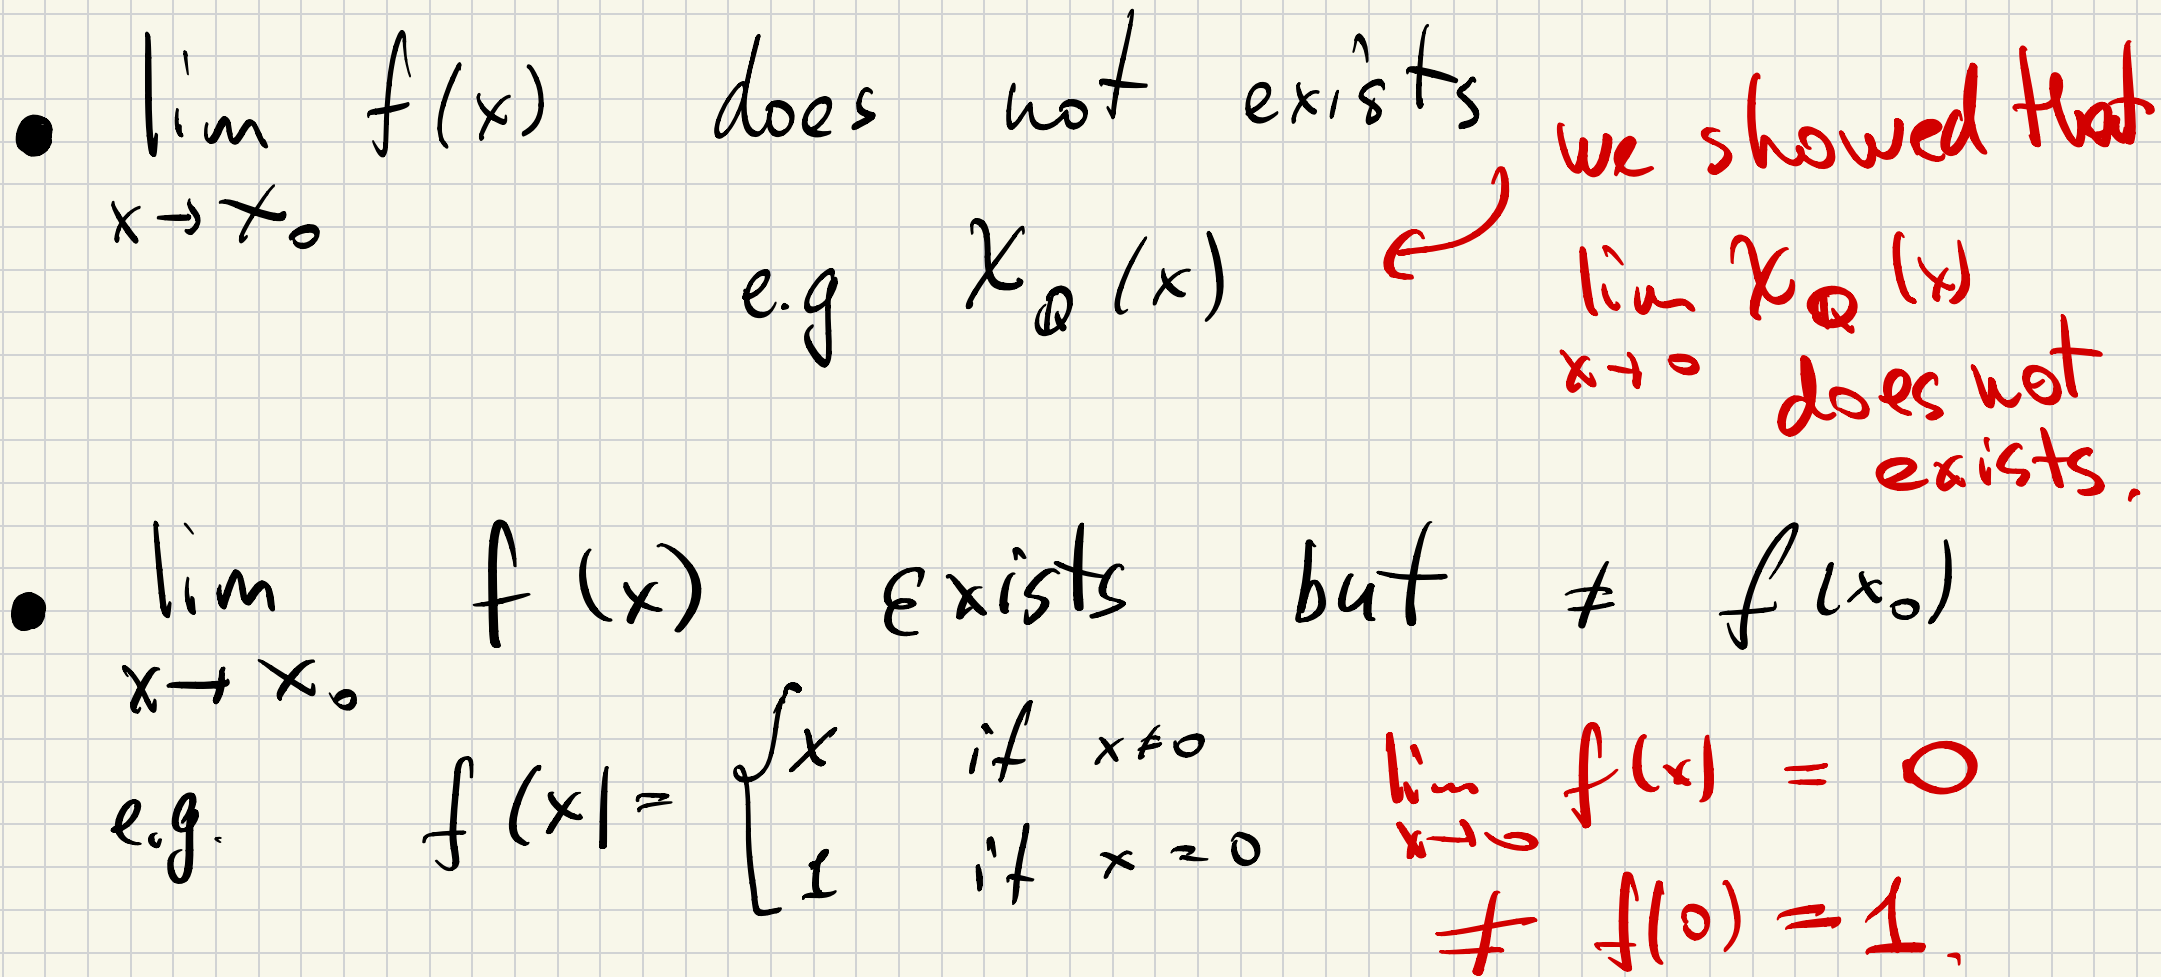 • lim f(x) does not exists
x → x₀
e.g χ_ℚ (x)
we showed that
lim χ_ℚ (x)
x → 0
does not
exists.
• lim f(x) exists but ≠ f(x₀)
x → x₀
e.g. f(x) = { x if x ≠ 0
1 if x = 0
lim f(x) = 0
x → 0
≠ f(0) = 1.